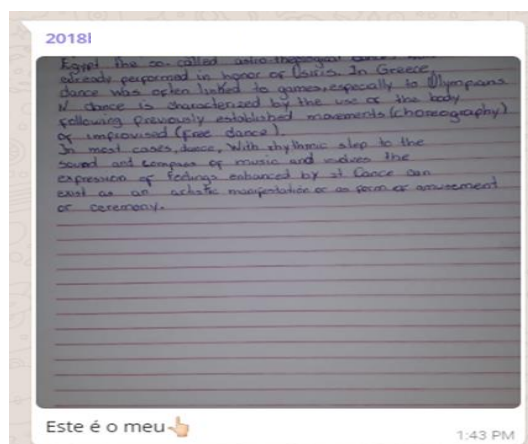 2018l
Egypt the so-called astro-theological
already performed in honor of Osiris. In Greece,
dance was often linked to games, especially to Olympians
N dance is characterized by the use of the body
following previously established movements (choreography)
or improvised (free dance).
In most cases, dance, With rhythmic step to the
sound and compass of music and the
expression of feelings enhanced by it. Dance can
exist as an artistic manifestation or as form of amusement
or ceremony.
Este é o meu👆🏻
1:43 PM